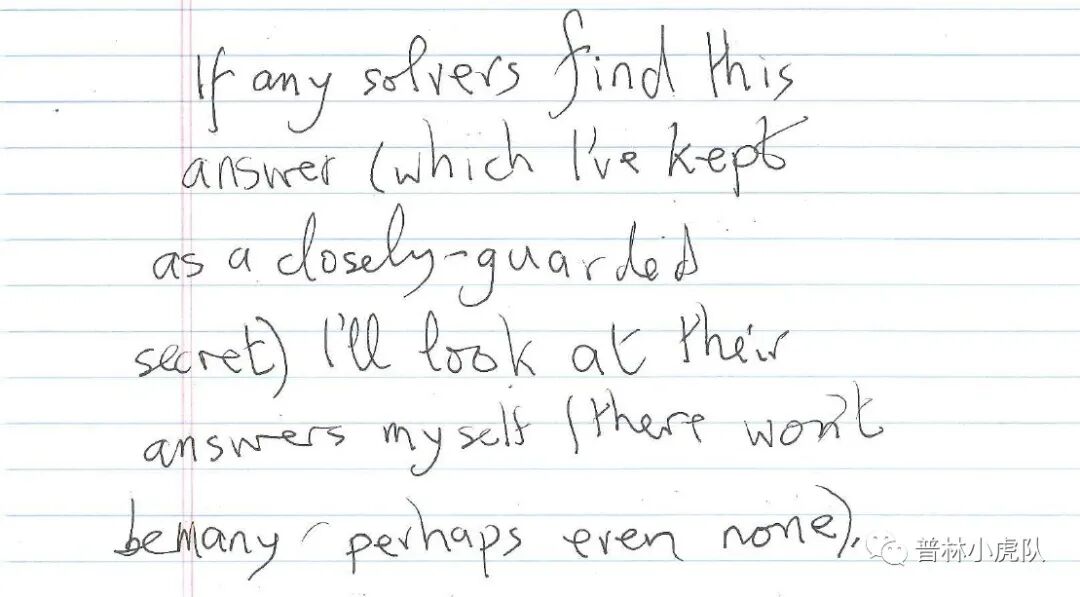 If any solvers find this
answer (which I've kept
as a closely-guarded
secret) I'll look at their
answers myself (there won't
be many - perhaps even none).
普林小虎队